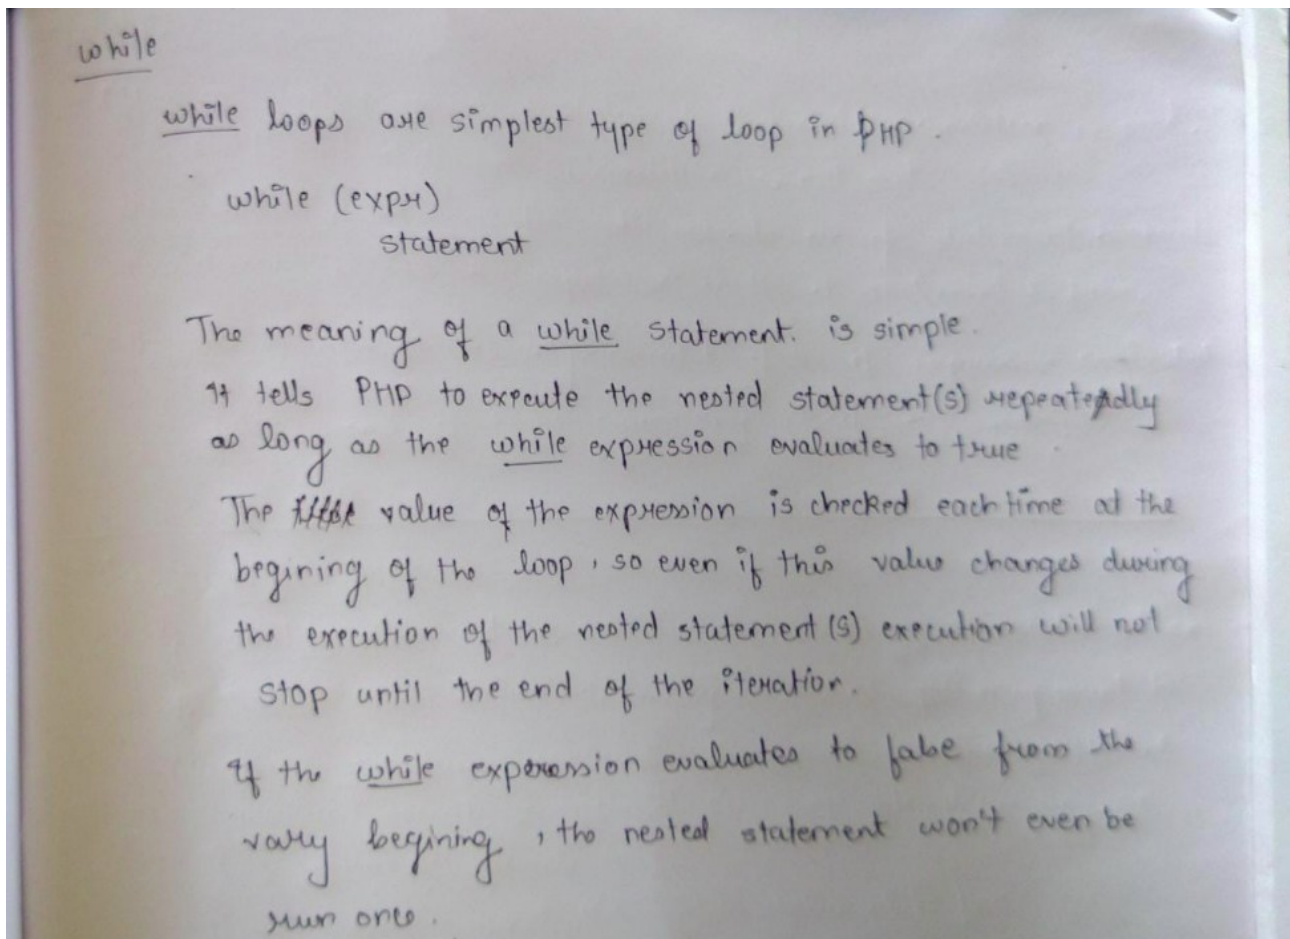 while
while loops are simplest type of loop in PHP.
while (expr)
statement
The meaning of a while statement. is simple.
It tells PHP to execute the nested statement(s) repeatedly
as long as the while expression evaluates to true.
The value of the expression is checked each time at the
begining of the loop, so even if this value changes during
the execution of the nested statement (s) execution will not
stop until the end of the iteration.
If the while experession evaluates to false from the
vary begining, the nested statement won't even be
run once.